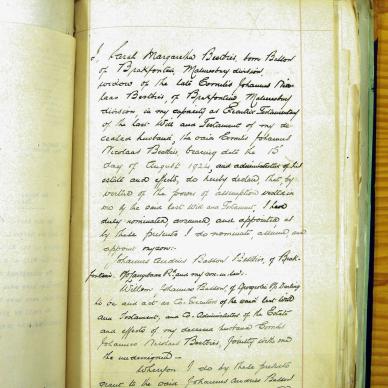 I, Sarah Margaretha Basson, born Basson
of Brakfontein, Malmesbury division,
widow of the late Cornelis Johannes Nico
laas of Brakfontein, Malmesbury
division in my capacity as Executrix Testamentary
of the last Will and Testament of my de
ceased husband, the said Cornelis Johannes
Nicolaas bearing date the 15
day of August 1924, and administratrix of his
estate and effects, do hereby declare that, by
virtue of the power of assumption
me by the said last Will and Testament, I have
duly nominated assumed and appointed as
by these presents I do nominate, assume and
appoint my son:-
Johannes Andries Basson of Brak
fontein, and my son in law:
Willem Johannes Basson, of Darling
to be and act as Co. Executors of the said last Will
and Testament, and Co. Administrators of the Estate
and effects of my deceased husband Cornelis
Johannes Nicolaas jointly with me
the undersigned -
Wherefore I do by these presents
grant to the said Johannes Andries Basson